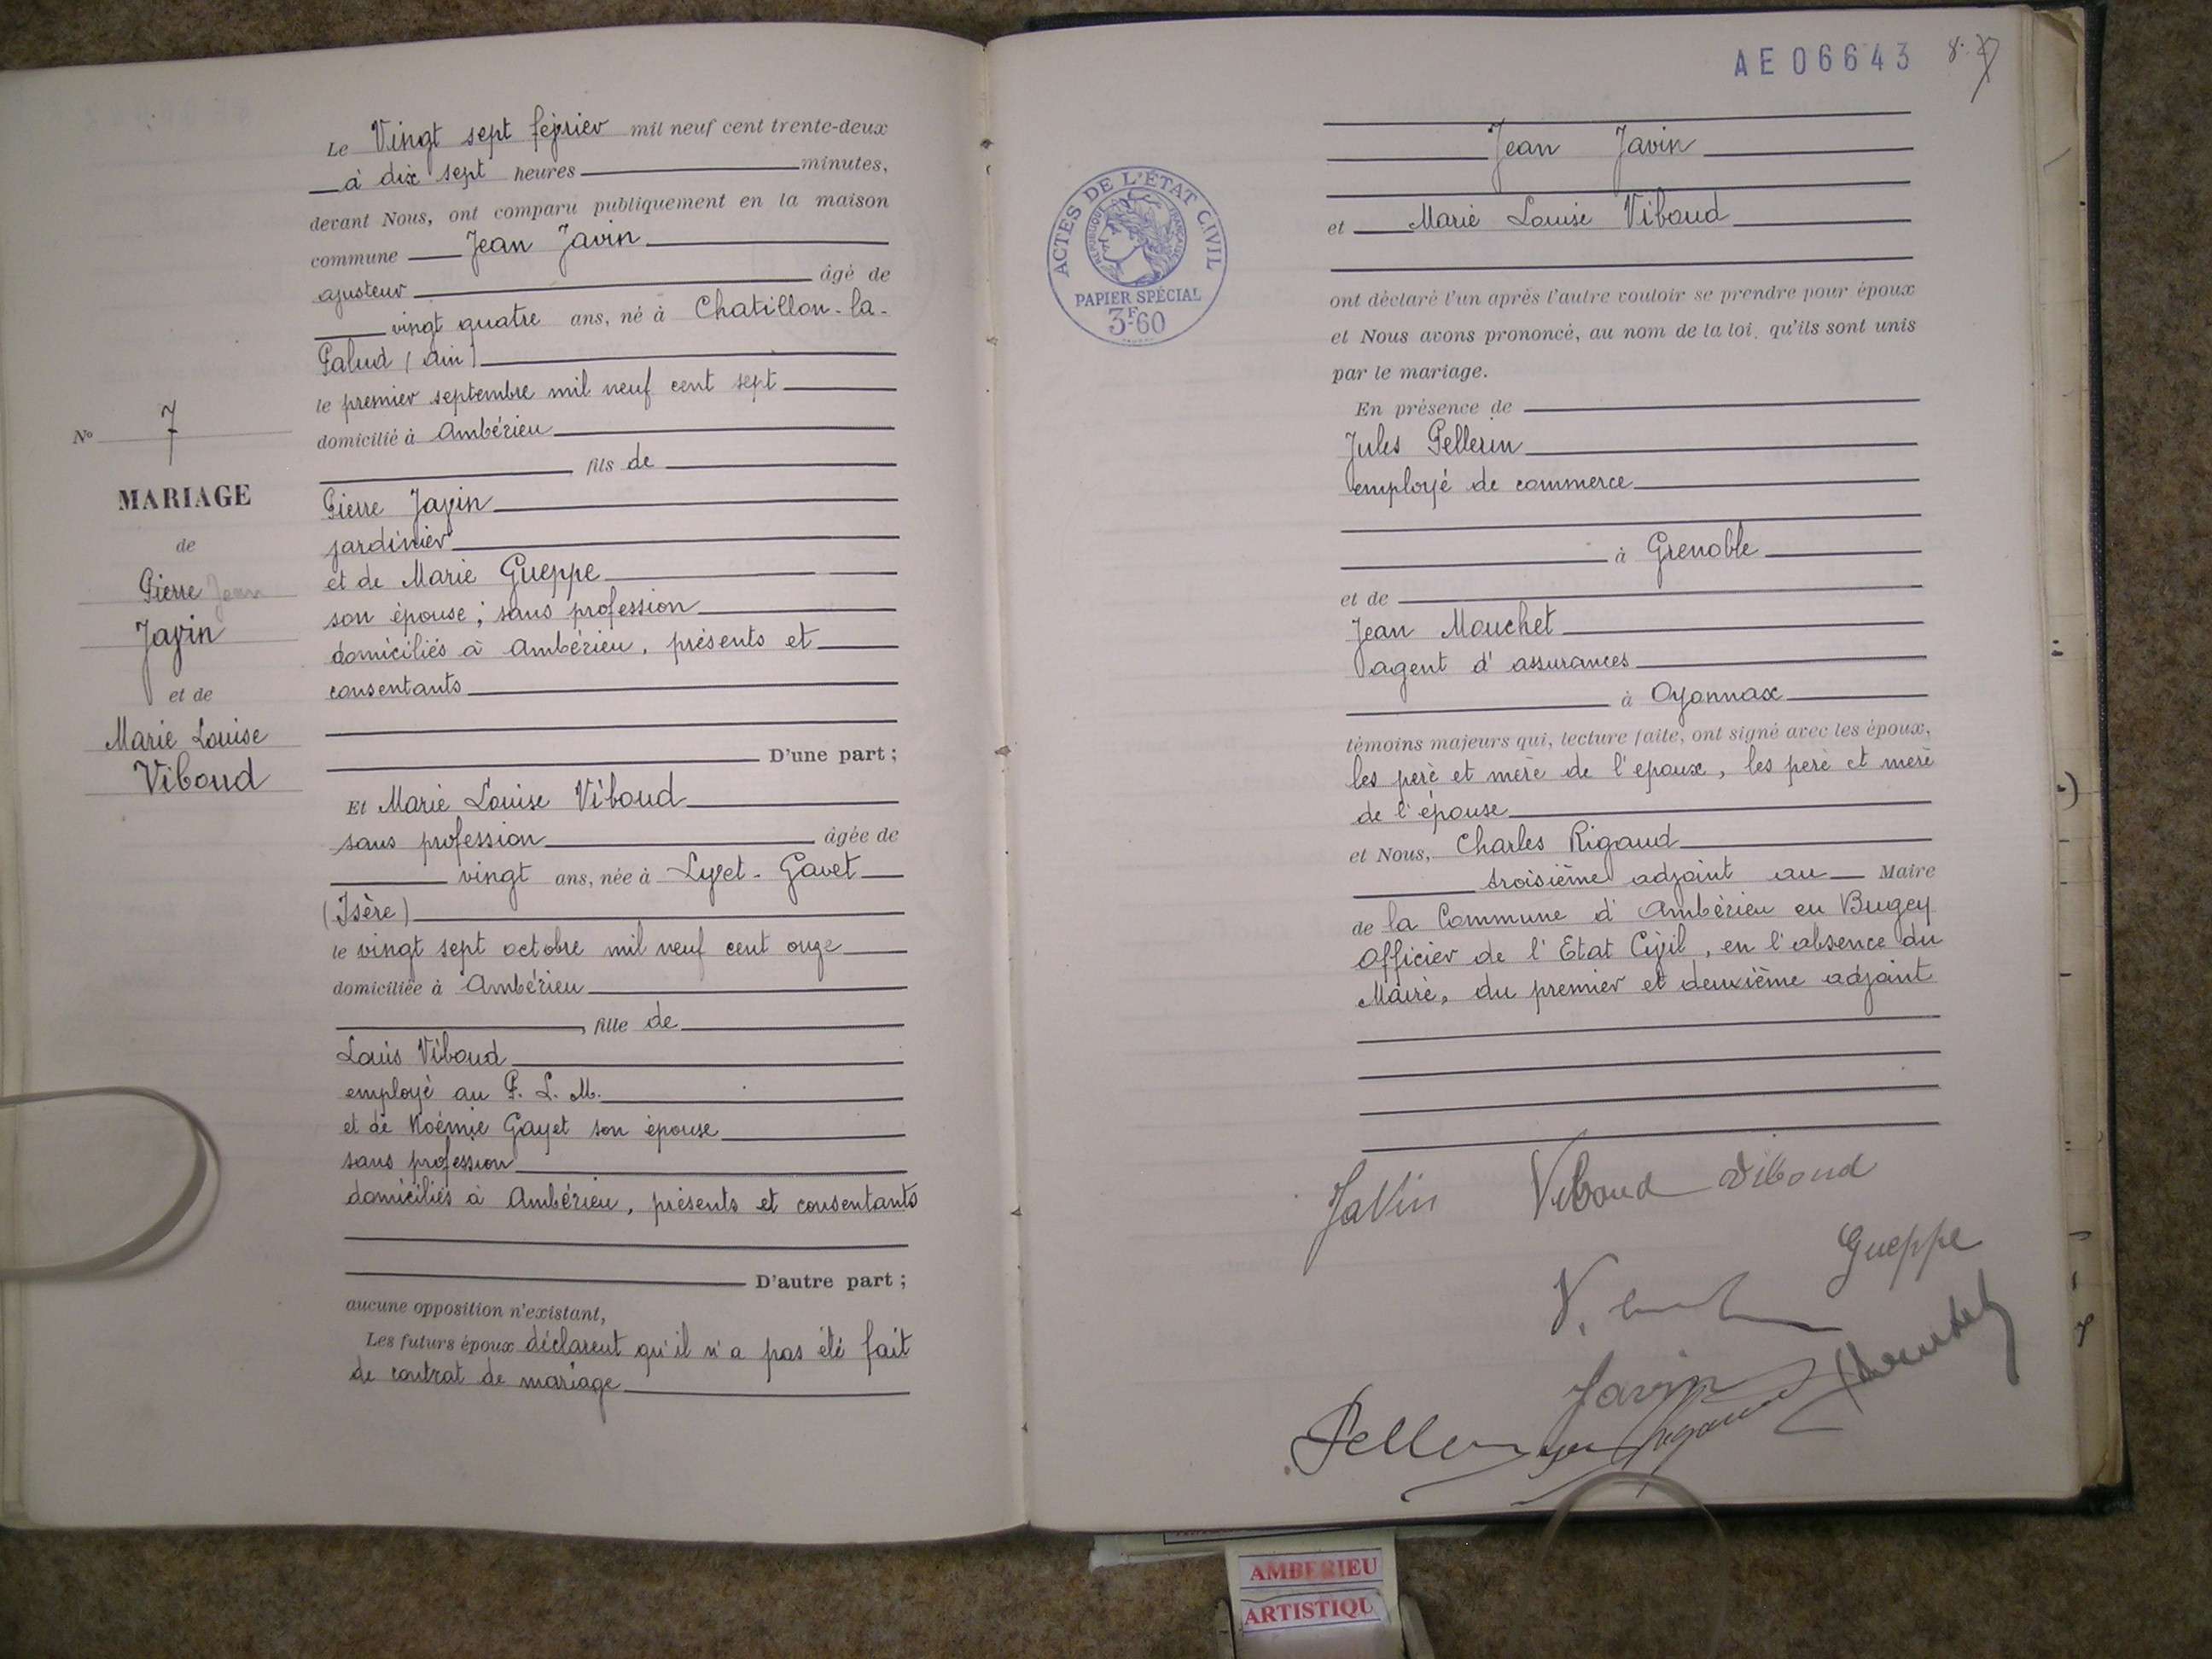 Le Vingt sept février mil neuf cent trente-deux
à dix sept heures minutes,
devant Nous, ont comparu publiquement en la maison
commune Jean Javin
ajusteur âgé de
vingt quatre ans, né à Chatillon-la-
Palud (Ain)
le premier septembre mil neuf cent sept
domicilié à Ambérieu
fils de
Pierre Javin
jardinier
et de Marie Gueppe
son épouse ; sans profession
domiciliés à Ambérieu, présents et
consentants
D'une part ;
Et Marie Louise Viboud
sans profession âgée de
vingt ans, née à Gavet
(Isère)
le vingt sept octobre mil neuf cent onze
domiciliée à Ambérieu
, fille de
Louis Viboud
employé au P. L. M.
et de Noémie Gayet son épouse
sans profession
domiciliés à Ambérieu, présents et consentants
D'autre part ;
aucune opposition n'existant,
Les futurs époux déclarent qu'il n'a pas été fait
de contrat de mariage
No 7
MARIAGE
de
Pierre Jean
Javin
et de
Marie Louise
Viboud
AE06643
ACTES DE L'ÉTAT CIVIL
RÉPUBLIQUE FRANÇAISE
PAPIER SPÉCIAL
3F60
Jean Javin
et Marie Louise Viboud
ont déclaré l'un après l'autre vouloir se prendre pour époux
et Nous avons prononcé, au nom de la loi, qu'ils sont unis
par le mariage.
En présence de
Jules Pellerin
employé de commerce
à Grenoble
et de
Jean Mouchet
agent d'assurances
à Oyonnax
témoins majeurs qui, lecture faite, ont signé avec les époux,
les père et mère de l'epoux, les père et mère
de l'épouse
et Nous, Charles Rigaud
troisième adjoint au Maire
de la Commune d'Ambérieu en Bugey
Officier de l'Etat Civil, en l'absence du
Maire, du premier et deuxième adjoint
JaVin Viboud Viboud
Gueppe
Javin
AMBERIEU
ARTISTIQU